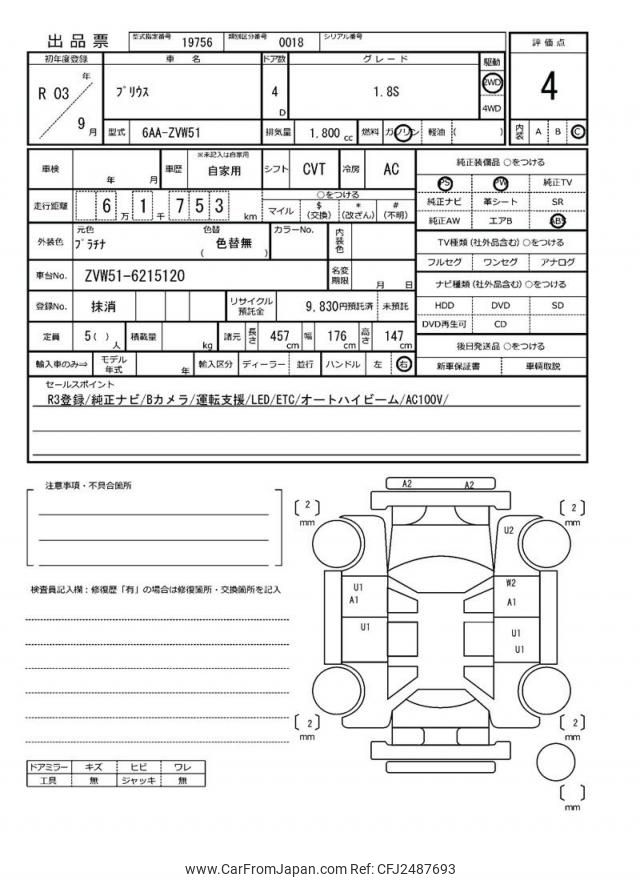 出品票 型式指定番号 19756 類別区分番号 0018 シリアル番号
評価点
4
内装 A B C
初年度登録 車名 ドア数 グレード 駆動
R 03 年 9 月 プリウス 4 D 1.8S 2WD 4WD
型式 6AA-ZVW51 排気量 1.800 cc 燃料 ガソリン 軽油 ( )
車検 年 月 車歴 ※未記入は自家用 自家用 シフト CVT 冷房 AC
走行距離 6 万 1 千 7 5 3 km ○をつける マイル $ (交換) * (改ざん) # (不明)
外装色 元色 プラチナ 色替 ( 色替無 ) カラーNo. 内装色
車台No. ZVW51-6215120 名変期限 月 日
登録No. 抹消 リサイクル預託金 9,830円預託済 未預託
定員 5( ) 人 積載量 kg 諸元 長さ 457 cm 幅 176 cm 高さ 147 cm
輸入車のみ⇒ モデル年式 年 輸入区分 ディーラー 並行 ハンドル 左 右
純正装備品 ○をつける
PS PW 純正TV
純正ナビ 革シート SR
純正AW エアB ABS
TV種類 (社外品含む) ○をつける
フルセグ ワンセグ アナログ
ナビ種類 (社外品含む) ○をつける
HDD DVD SD
DVD再生可 CD
後日発送品 ○をつける
新車保証書 車輌取説
セールスポイント
R3登録/純正ナビ/Bカメラ/運転支援/LED/ETC/オートハイビーム/AC100V/
注意事項・不具合箇所
検査員記入欄：修復歴「有」の場合は修復箇所・交換箇所を記入
A2 A2
〔 2 〕 mm 〔 2 〕 mm
U2
U1 W2
A1 A1
U1 U1
U1
〔 2 〕 mm 〔 2 〕 mm
〔 〕 mm
ドアミラー キズ ヒビ ワレ
工具 無 ジャッキ 無
www.CarFromJapan.com Ref: CFJ2487693